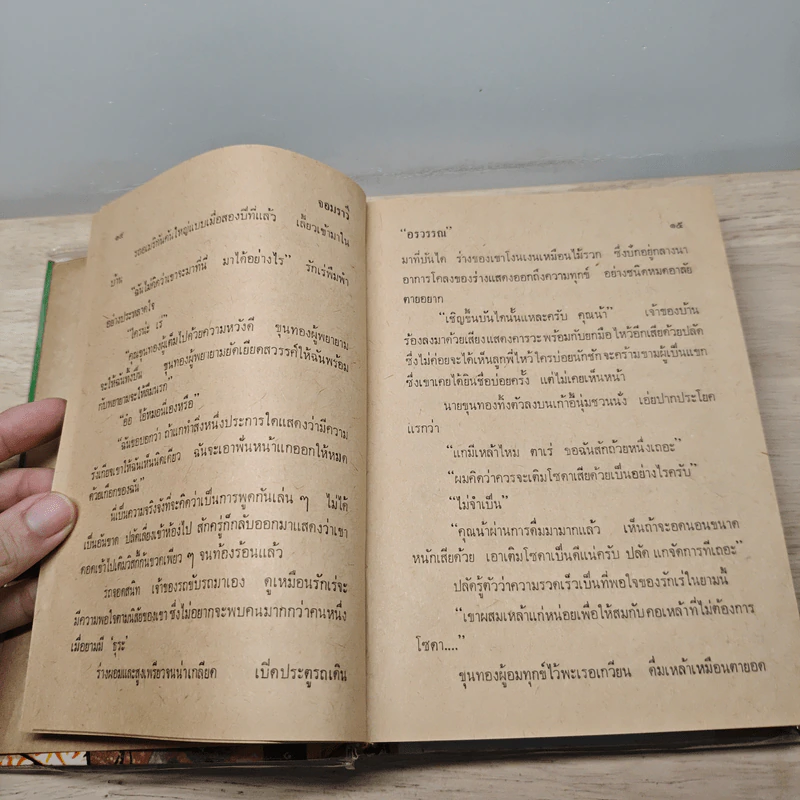 ๑๔ จอมราวี
รถอเมริกันคันใหญ่แบบเมื่อสองปีที่แล้ว เลี้ยวเข้ามาใน
บ้าน
“ฉันไม่คิดว่าเขาจะมาที่นี่ มาได้อย่างไร” รักเร่พึมพำ
อย่างประหลาดใจ
“ใครน่ะ เร่”
“คุณขุนทองผู้เต็มไปด้วยความหวังดี ขุนทองผู้พยายาม
จะให้ฉันทั้งปืน ขุนทองผู้พยายามยัดเยียดสวรรค์ให้ฉันพร้อม
กับพยายามจะให้ลืมนรก”
“อ้อ ไอ้หมอนี่เองหรือ”
“ฉันขอบอกว่า ถ้าแกทำสิ่งหนึ่งประการใดแสดงว่ามีความ
รังเกียจเขาให้ฉันเห็นนิดเดียว ฉันจะเอาพื้นหน้าแกออกให้หมด
ด้วยเกือกของฉัน”
นี่เป็นความจริงจังที่จะคิดว่าเป็นการพูดกันเล่น ๆ ไม่ได้
เป็นอันขาด ปลัดเลี่ยงเข้าห้องไป สักครู่ก็กลับออกมาแสดงว่าเขา
ดอดเข้าไปเติมวิสกี้ก้นขวดเพียว ๆ จนท้องร้อนแล้ว
รถจอดสนิท เจ้าของรถขับรถมาเอง ดูเหมือนรักเร่จะ
มีความพอใจตามนิสัยของเขา ซึ่งไม่อยากจะพบคนมากกว่าคนหนึ่ง
เมื่อยามมี ‘ธุระ’
ร่างผอมและสูงเพรียวจนน่าเกลียด เปิดประตูรถเดิน
“อรวรรณ” ๑๕
มาที่บันได ร่างของเขาโงนเงนเหมือนไม้รวก ซึ่งปักอยู่กลางนา
อาการโคลงของร่างแสดงออกถึงความทุกข์ อย่างชนิดหมดอาลัย
ตายอยาก
“เชิญขึ้นบันไดนั้นแหละครับ คุณน้า” เจ้าของบ้าน
ร้องลงมาด้วยเสียงแสดงคารวะ พร้อมกับยกมือ ไหว้อีกเสียด้วยปลัด
ซึ่งไม่ค่อยจะได้เห็นลูกพี่ไหว้ ใครบ่อยนักชักจะคร้ามขามผู้เป็นแขก
ซึ่งเขาเคยได้ยินชื่อบ่อยครั้ง แต่ไม่เคยเห็นหน้า
นายขุนทองทิ้งตัวลงบนเก้าอี้นุ่มชวนนั่ง เอ่ยปากประโยค
แรกว่า
“แกมีเหล้าไหม ตาเร่ ขอฉันสักถ้วยหนึ่งเถอะ”
“ผมคิดว่าควรจะเติมโซดาเสียด้วยเป็นอย่างไรครับ”
“ไม่จำเป็น”
“คุณน้าผ่านการดื่มมามากแล้ว เห็นถ้าจะอดนอนขนาด
หนักเสียด้วย เอาเติมโซดาเป็นดีแน่ครับ ปลัด แกจัดการทีเถอะ”
ปลัดรู้ตัวว่าความรวดเร็วเป็นที่พอใจของรักเร่ในยามนี้
“เขาผสมเหล้าแก่หน่อยเพื่อให้สมกับคอเหล้าที่ไม่ต้องการ
โซดา....”
ขุนทองผู้อมทุกข์ไว้พะเรอเกวียน ดื่มเหล้าเหมือนตายอด